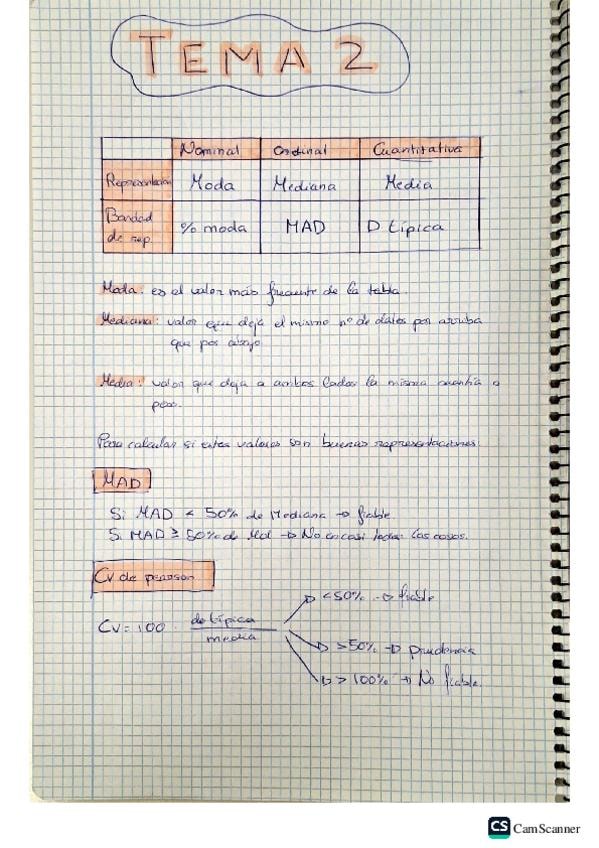 TEMA 2
Nominal Ordinal Cuantitativa
Representación Moda Mediana Media
Bondad de rep. % moda MAD D típica
Moda: es el valor más frecuente de la tabla.
Mediana: valor que deja el mismo nº de datos por arriba
que por abajo
Media: valor que deja a ambos lados la misma cuantía o
peso.
Para calcular si estos valores son buenas representaciones:
MAD
Si MAD < 50% de Mediana → fiable
Si MAD ≥ 50% de Md → No en casi todos los casos.
CV de pearson
CV = 100 · de típica / media
< 50% → fiable
> 50% → prudencia
> 100% → No fiable.
CS CamScanner